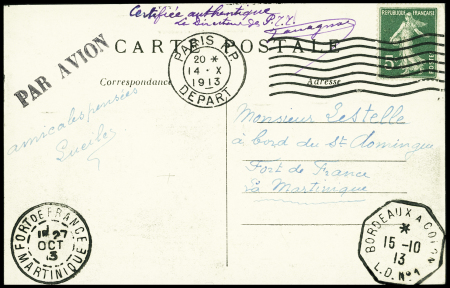 Certifiée authentique
Le Directeur des P.T.T.
CARTE POSTALE
RÉPUBLIQUE FRANÇAISE
5c
POSTES
PARIS R.P.
20 *
14 - X
1913
DÉPART
PAR AVION
Correspondance
Adresse
amicales pensées
Monsieur Lestelle
à bord du St Domingue
Fort de France
La Martinique
FORT DE FRANCE
27
OCT
13
MARTINIQUE
BORDEAUX A COLON
*
15 -10
13
L.D. No 1